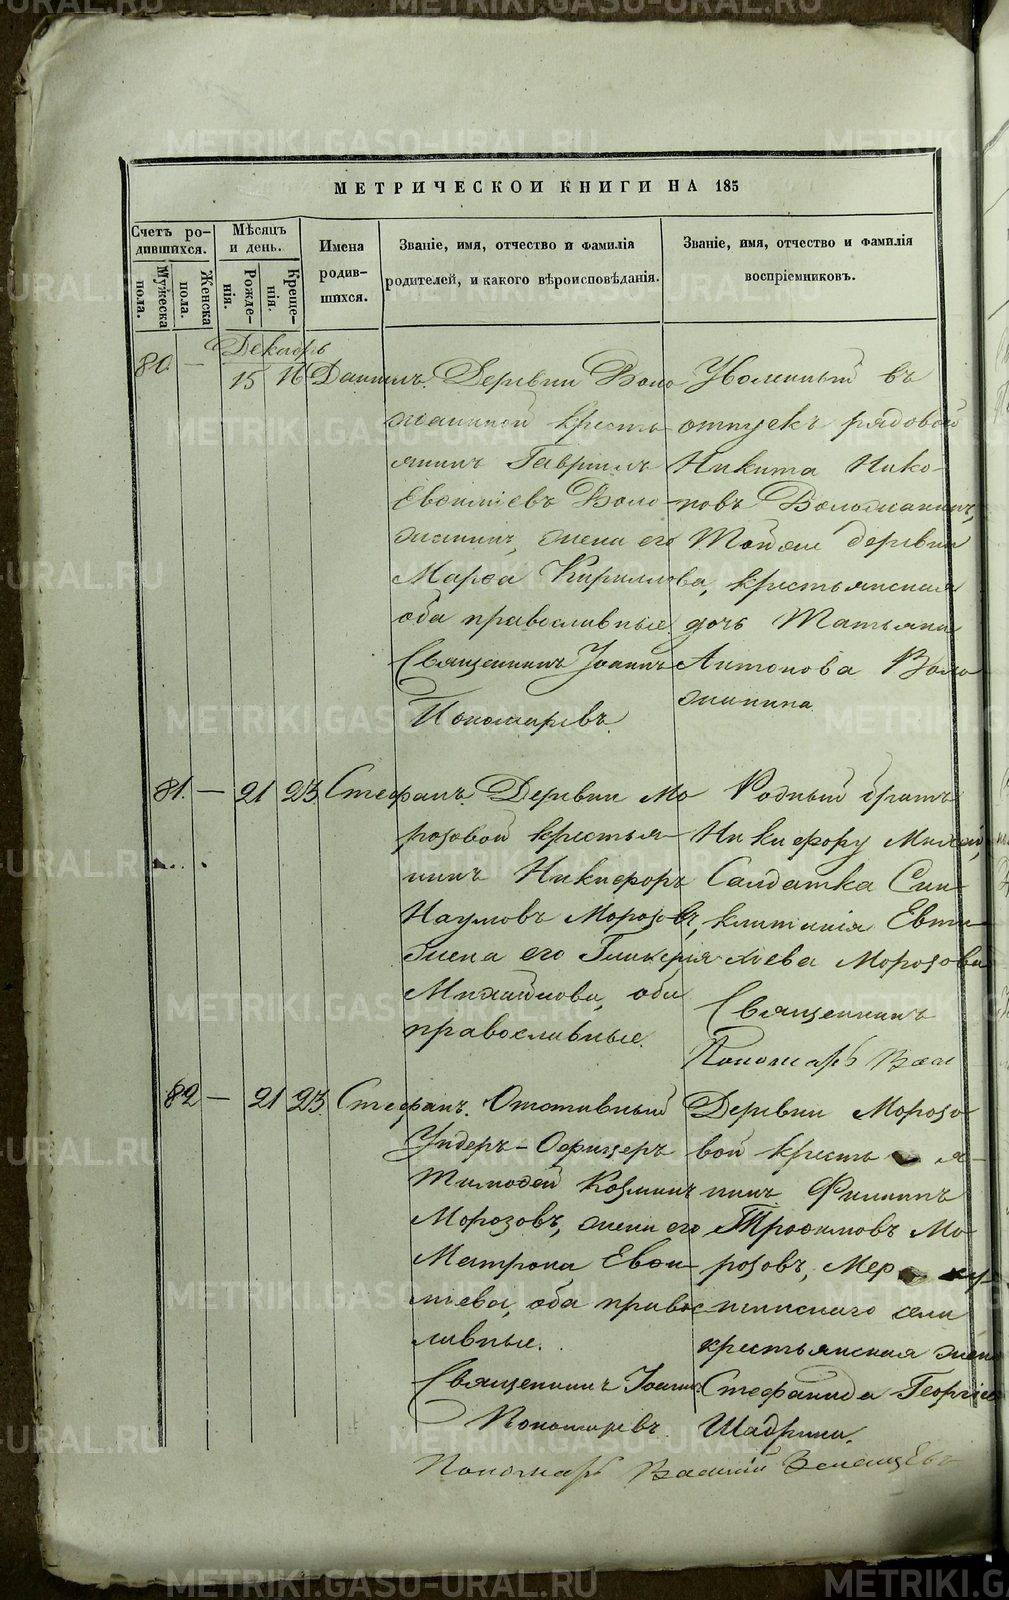 МЕТРИЧЕСКОЙ КНИГИ НА 185
Счетъ ро-
дившихся.
Мужеска
пола.
Женска
пола.
Мѣсяцъ
и день.
Рожде-
нія.
Креще-
нія.
Имена
родив-
шихся.
Званіе, имя, отчество и фамилія
родителей, и какого вѣроисповѣданія.
Званіе, имя, отчество и фамилія
воспріемниковъ.
Декабрь
80. — 15 16 Даніилъ.
Деревни Воло
жаниной кресть-
янинъ Гавріилъ
Евѳиміевъ Воло
жанинъ, жена его
Марѳа Кириллова,
оба православные.
Священникъ Іоаннъ
Пономаревъ.
Уволенный въ
отпускъ рядовой
Никита Нико-
новъ Воложанинъ,
Той же деревни
крестьянская
дочь Татьяна
Антонова Воло
жанина
81. — 21 23 Стефанъ.
Деревни Мо
розовой крестья-
нинъ Никифоръ
Наумовъ Морозовъ,
жена его Гликерія
Михайлова, оба
православные.
Родный братъ
Никифору
Салдатка Син-
клитикія Евти-
хіева Морозова
Священникъ
Пономарь Вас
82 — 21 23. Стефанъ.
Отставный
Ундеръ-Офицеръ
Тимоѳей Козминъ
Морозовъ, жена его
Матрона Евѳи-
міева, оба правос
лавные.
Священникъ Іоаннъ
Пономаревъ.
Деревни Морозо
вой кресть я-
нинъ Филиппъ
Троѳимовъ Мо
розовъ, Мер ку-
шинскаго села
крестьянская жена
Стефанида Георгіев
Шадрина.
Пономарь Василій
METRIKI.GASO-URAL.RU